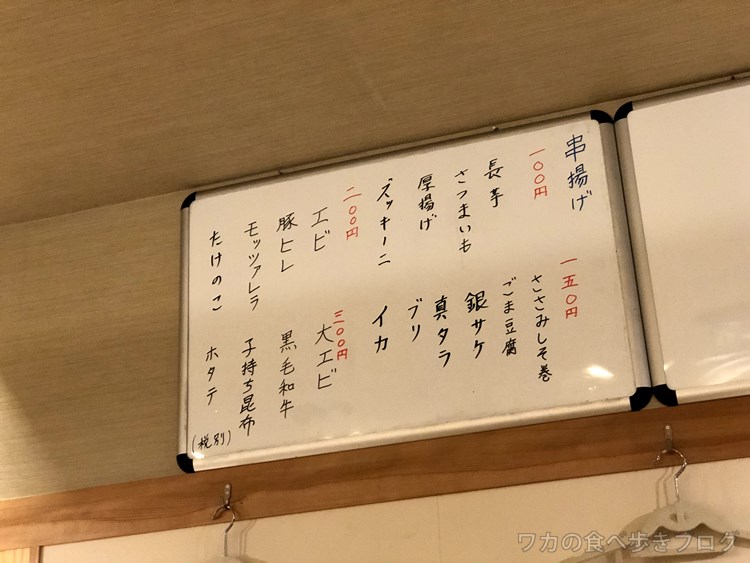 串揚げ
一〇〇円
長芋
さつまいも
厚揚げ
ズッキーニ
一五〇円
ささみしそ巻
ごま豆腐
銀サケ
真タラ
ブリ
イカ
二〇〇円
エビ
豚ヒレ
モッツァレラ
たけのこ
三〇〇円
大エビ
黒毛和牛
子持ち昆布
ホタテ
(税別)
ワカの食べ歩きブログ